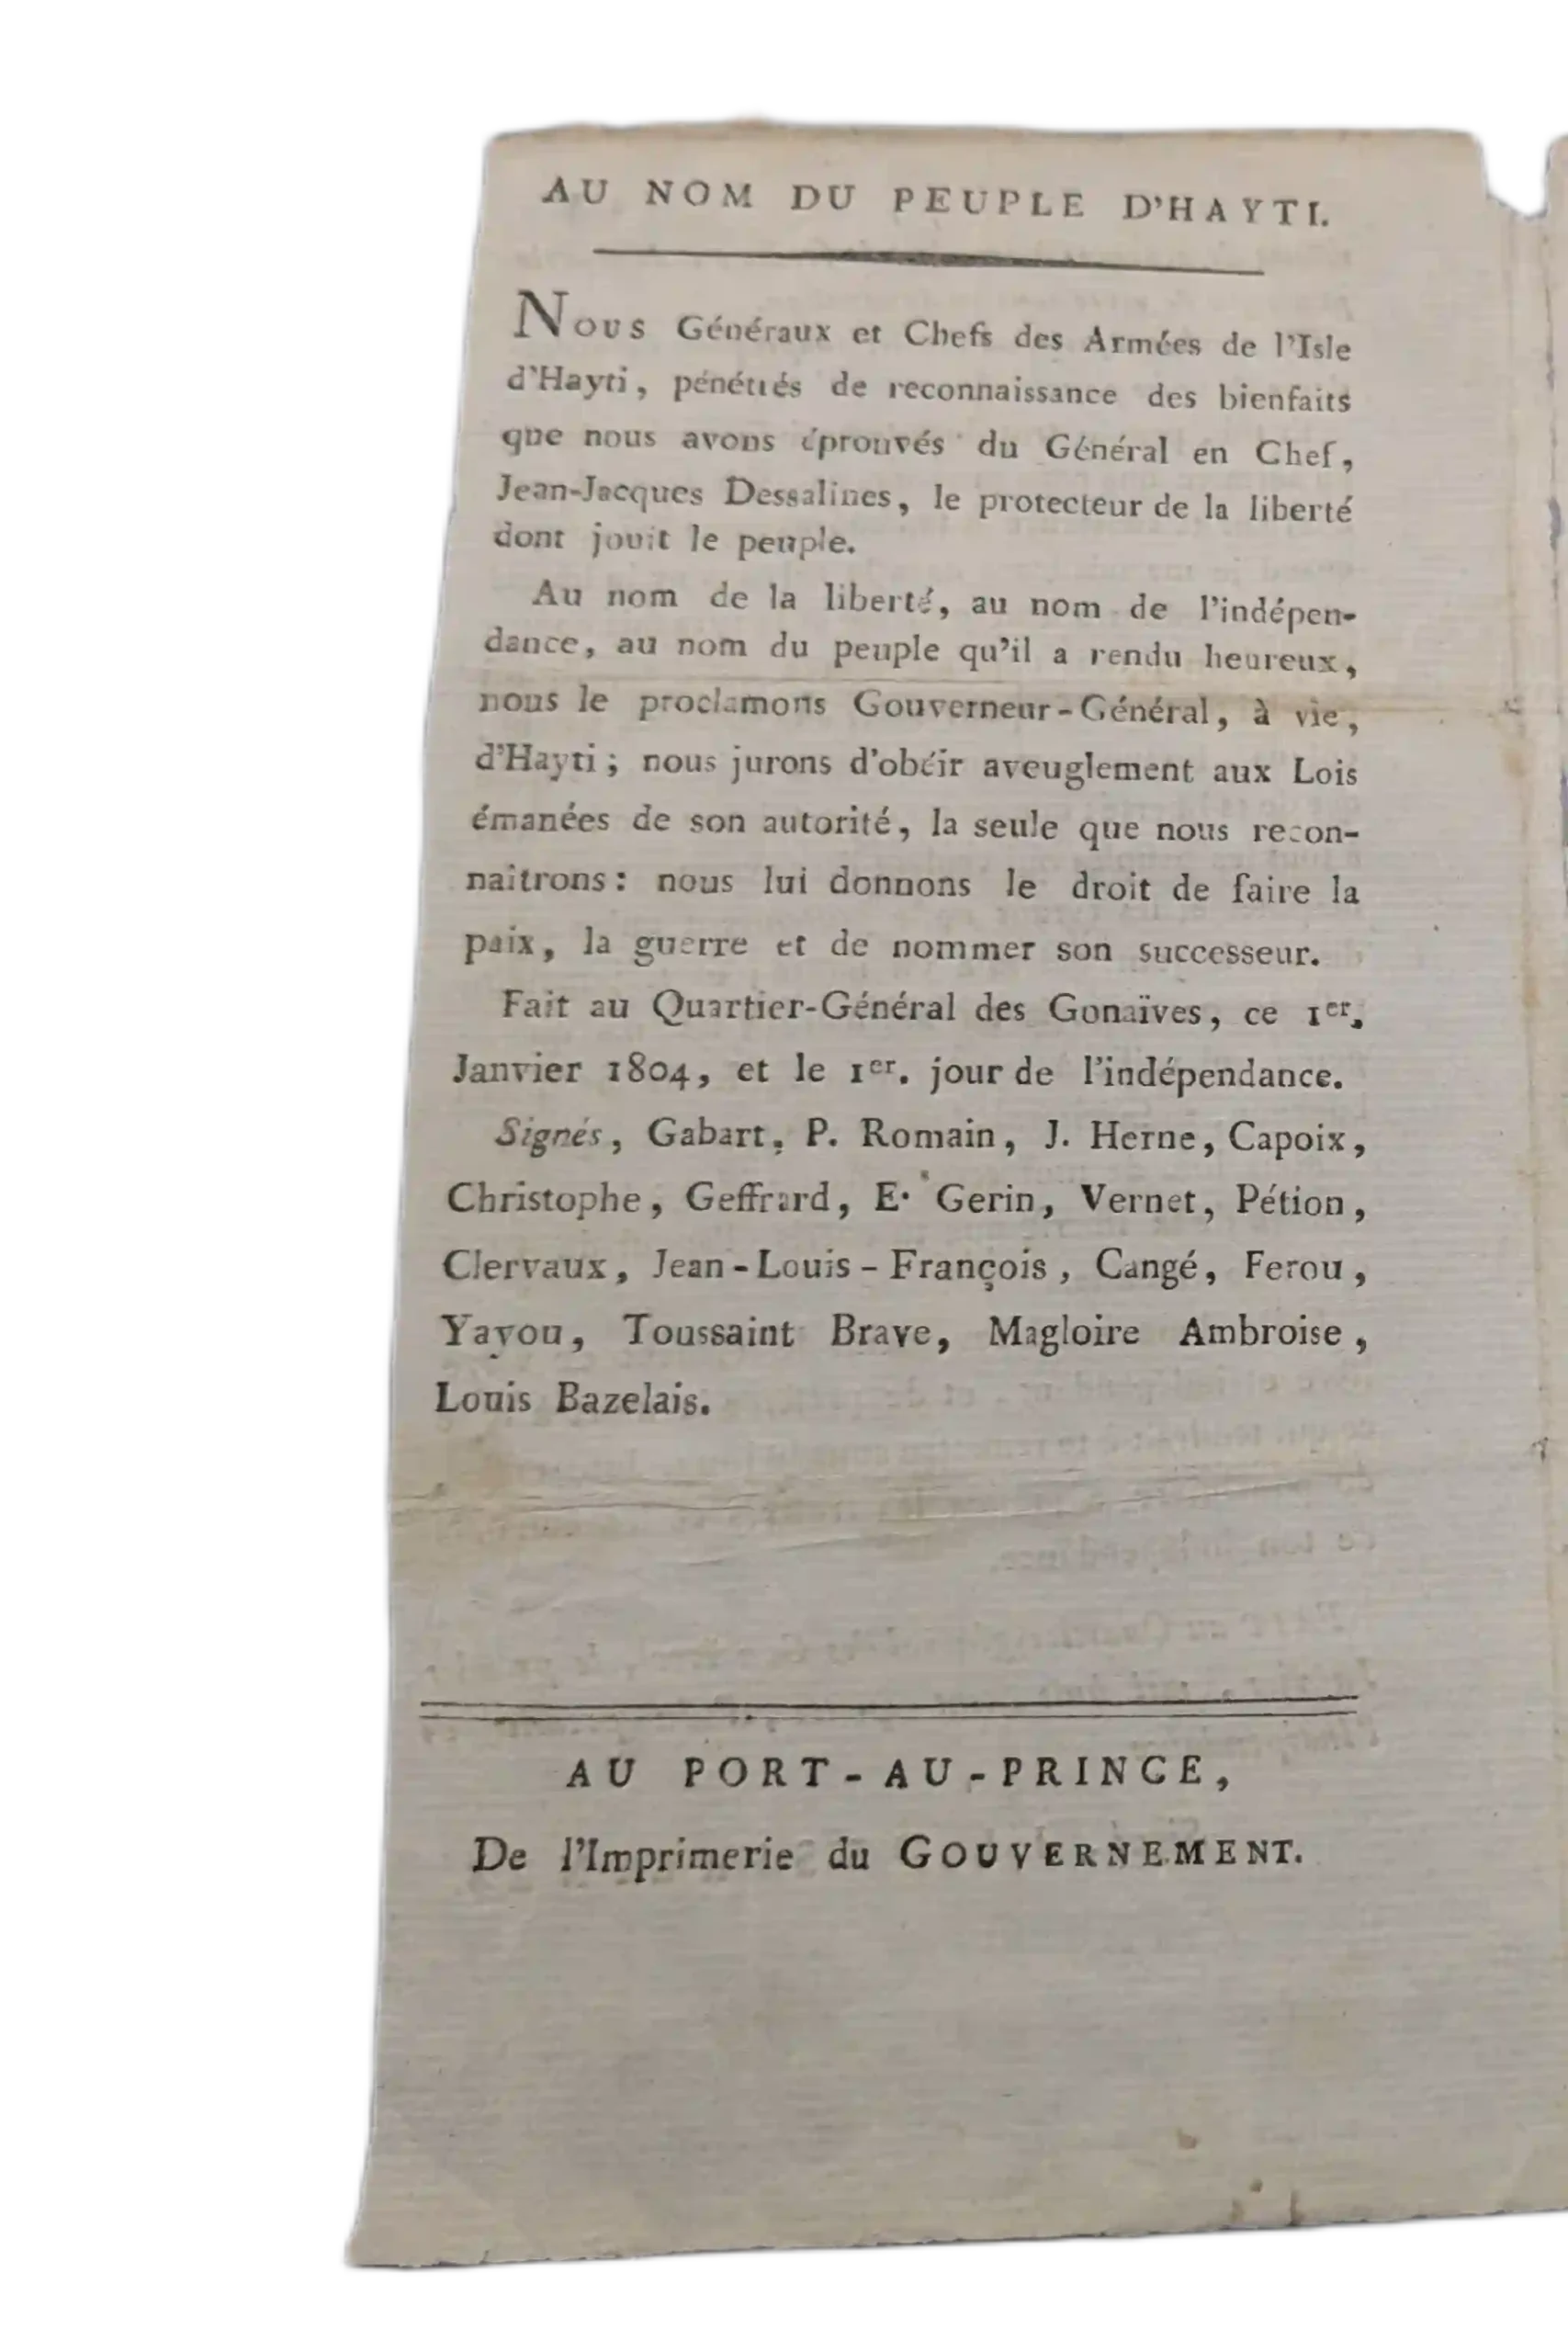 AU NOM DU PEUPLE D'HAYTI.
Nous Généraux et Chefs des Armées de l'Isle
d'Hayti, pénétrés de reconnaissance des bienfaits
que nous avons éprouvés du Général en Chef,
Jean-Jacques Dessalines, le protecteur de la liberté
dont jouit le peuple.
Au nom de la liberté, au nom de l'indépen-
dance, au nom du peuple qu'il a rendu heureux,
nous le proclamons Gouverneur-Général, à vie,
d'Hayti; nous jurons d'obéir aveuglement aux Lois
émanées de son autorité, la seule que nous recon-
naitrons: nous lui donnons le droit de faire la
paix, la guerre et de nommer son successeur.
Fait au Quartier-Général des Gonaïves, ce 1er.
Janvier 1804, et le 1er. jour de l'indépendance.
Signés, Gabart, P. Romain, J. Herne, Capoix,
Christophe, Geffrard, E. Gerin, Vernet, Pétion,
Clervaux, Jean-Louis-François, Cangé, Ferou,
Yayou, Toussaint Brave, Magloire Ambroise,
Louis Bazelais.
AU PORT-AU-PRINCE,
De l'Imprimerie du GOUVERNEMENT.